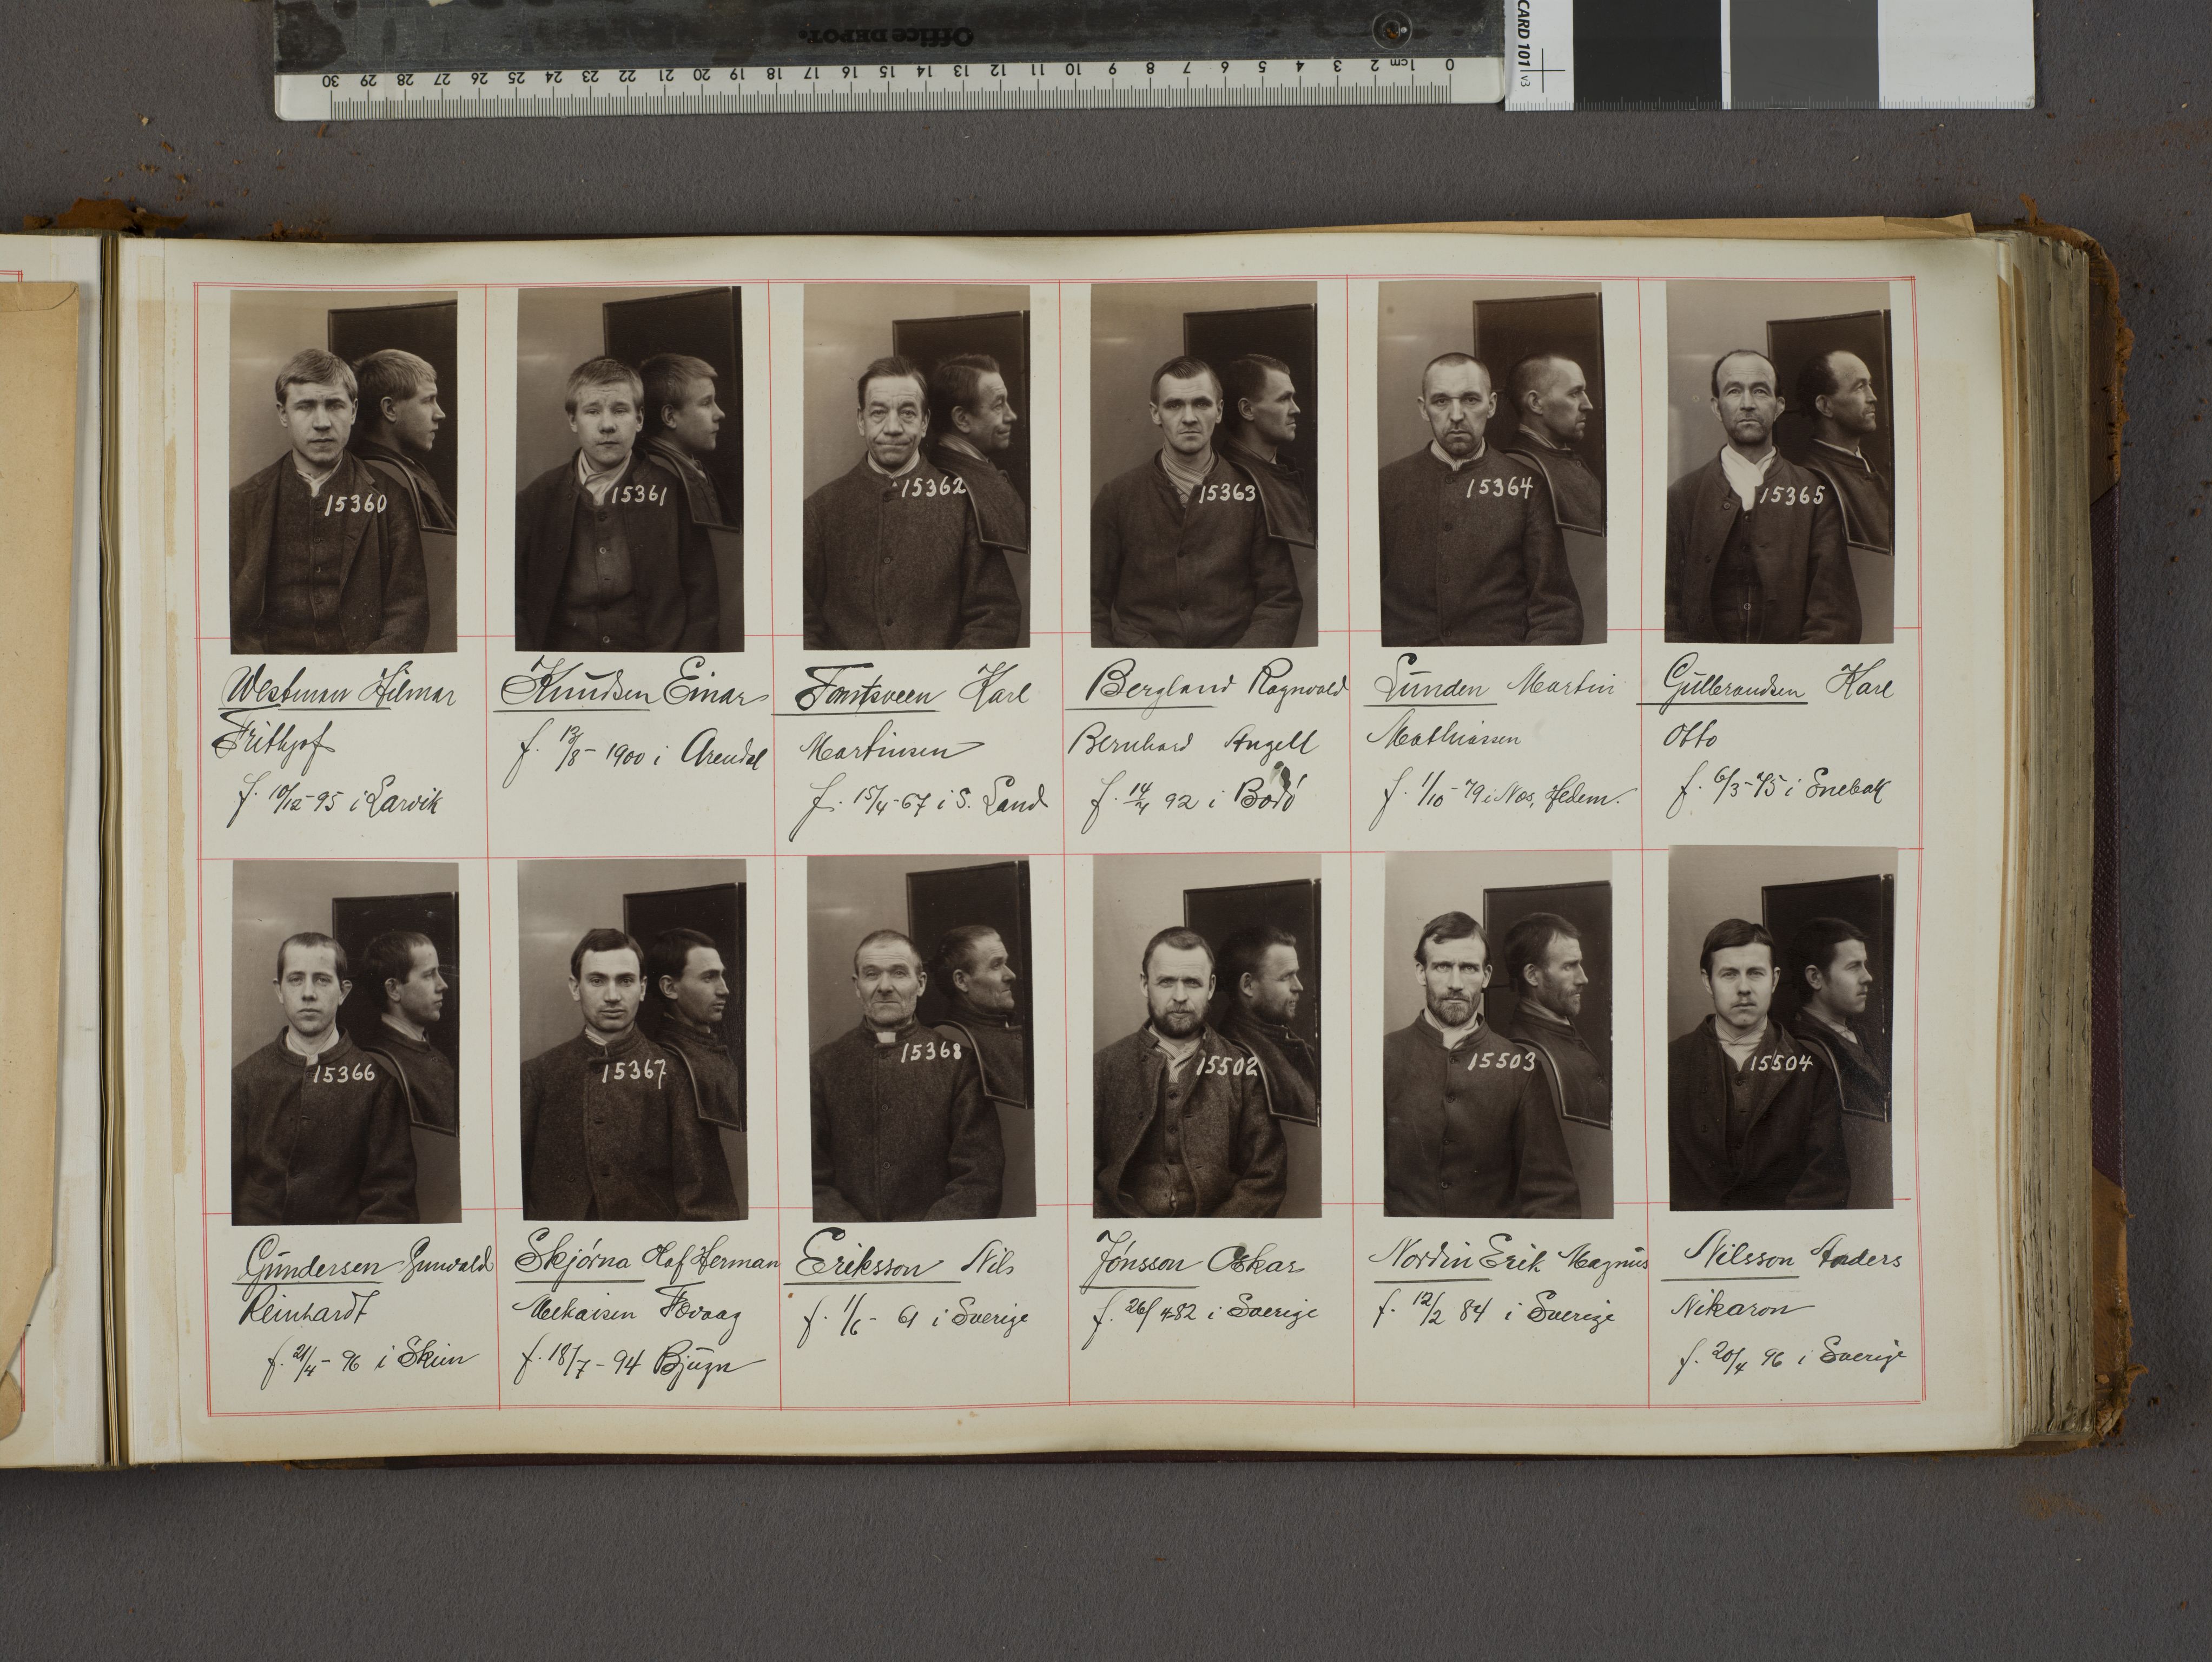 Office DEPOT.
CARD 101 v3
30 29 28 27 26 25 24 23 22 21 20 19 18 17 16 15 14 13 12 11 10 9 8 7 6 5 4 3 2 1cm 0
15360
15361
15362
15363
15364
15365
Westman Hilmar
Frithjof
f. 10/12-95 i Larvik
Knudsen Einar
f. 13/8-1900 i Arendal
Karl
Martinsen
f. 15/4-67 i S. Land
Bergland Ragnvald
Bernhard Angell
f. 14/4 92 i Bodö
Lunden Martin
Mathiassen
f. 1/10-79 i Nes, Hedem.
Gulbrandsen Karl
Otto
f. 6/3-75 i Enebak
15366
15367
15368
15502
15503
15504
Gundersen Gunvald
Reinhardt
f. 21/4-96 i Skien
Skjörna Olaf Herman
f. 18/7-94 Bjugn
Eriksson Nils
f. 1/6-61 i Sverige
Jönsson Oskar
f. 26/4 82 i Sverige
Nordin Erik Magnus
f. 12/2 84 i Sverige
Nilsson Anders
Nikaron
f. 20/4 96 i Sverige